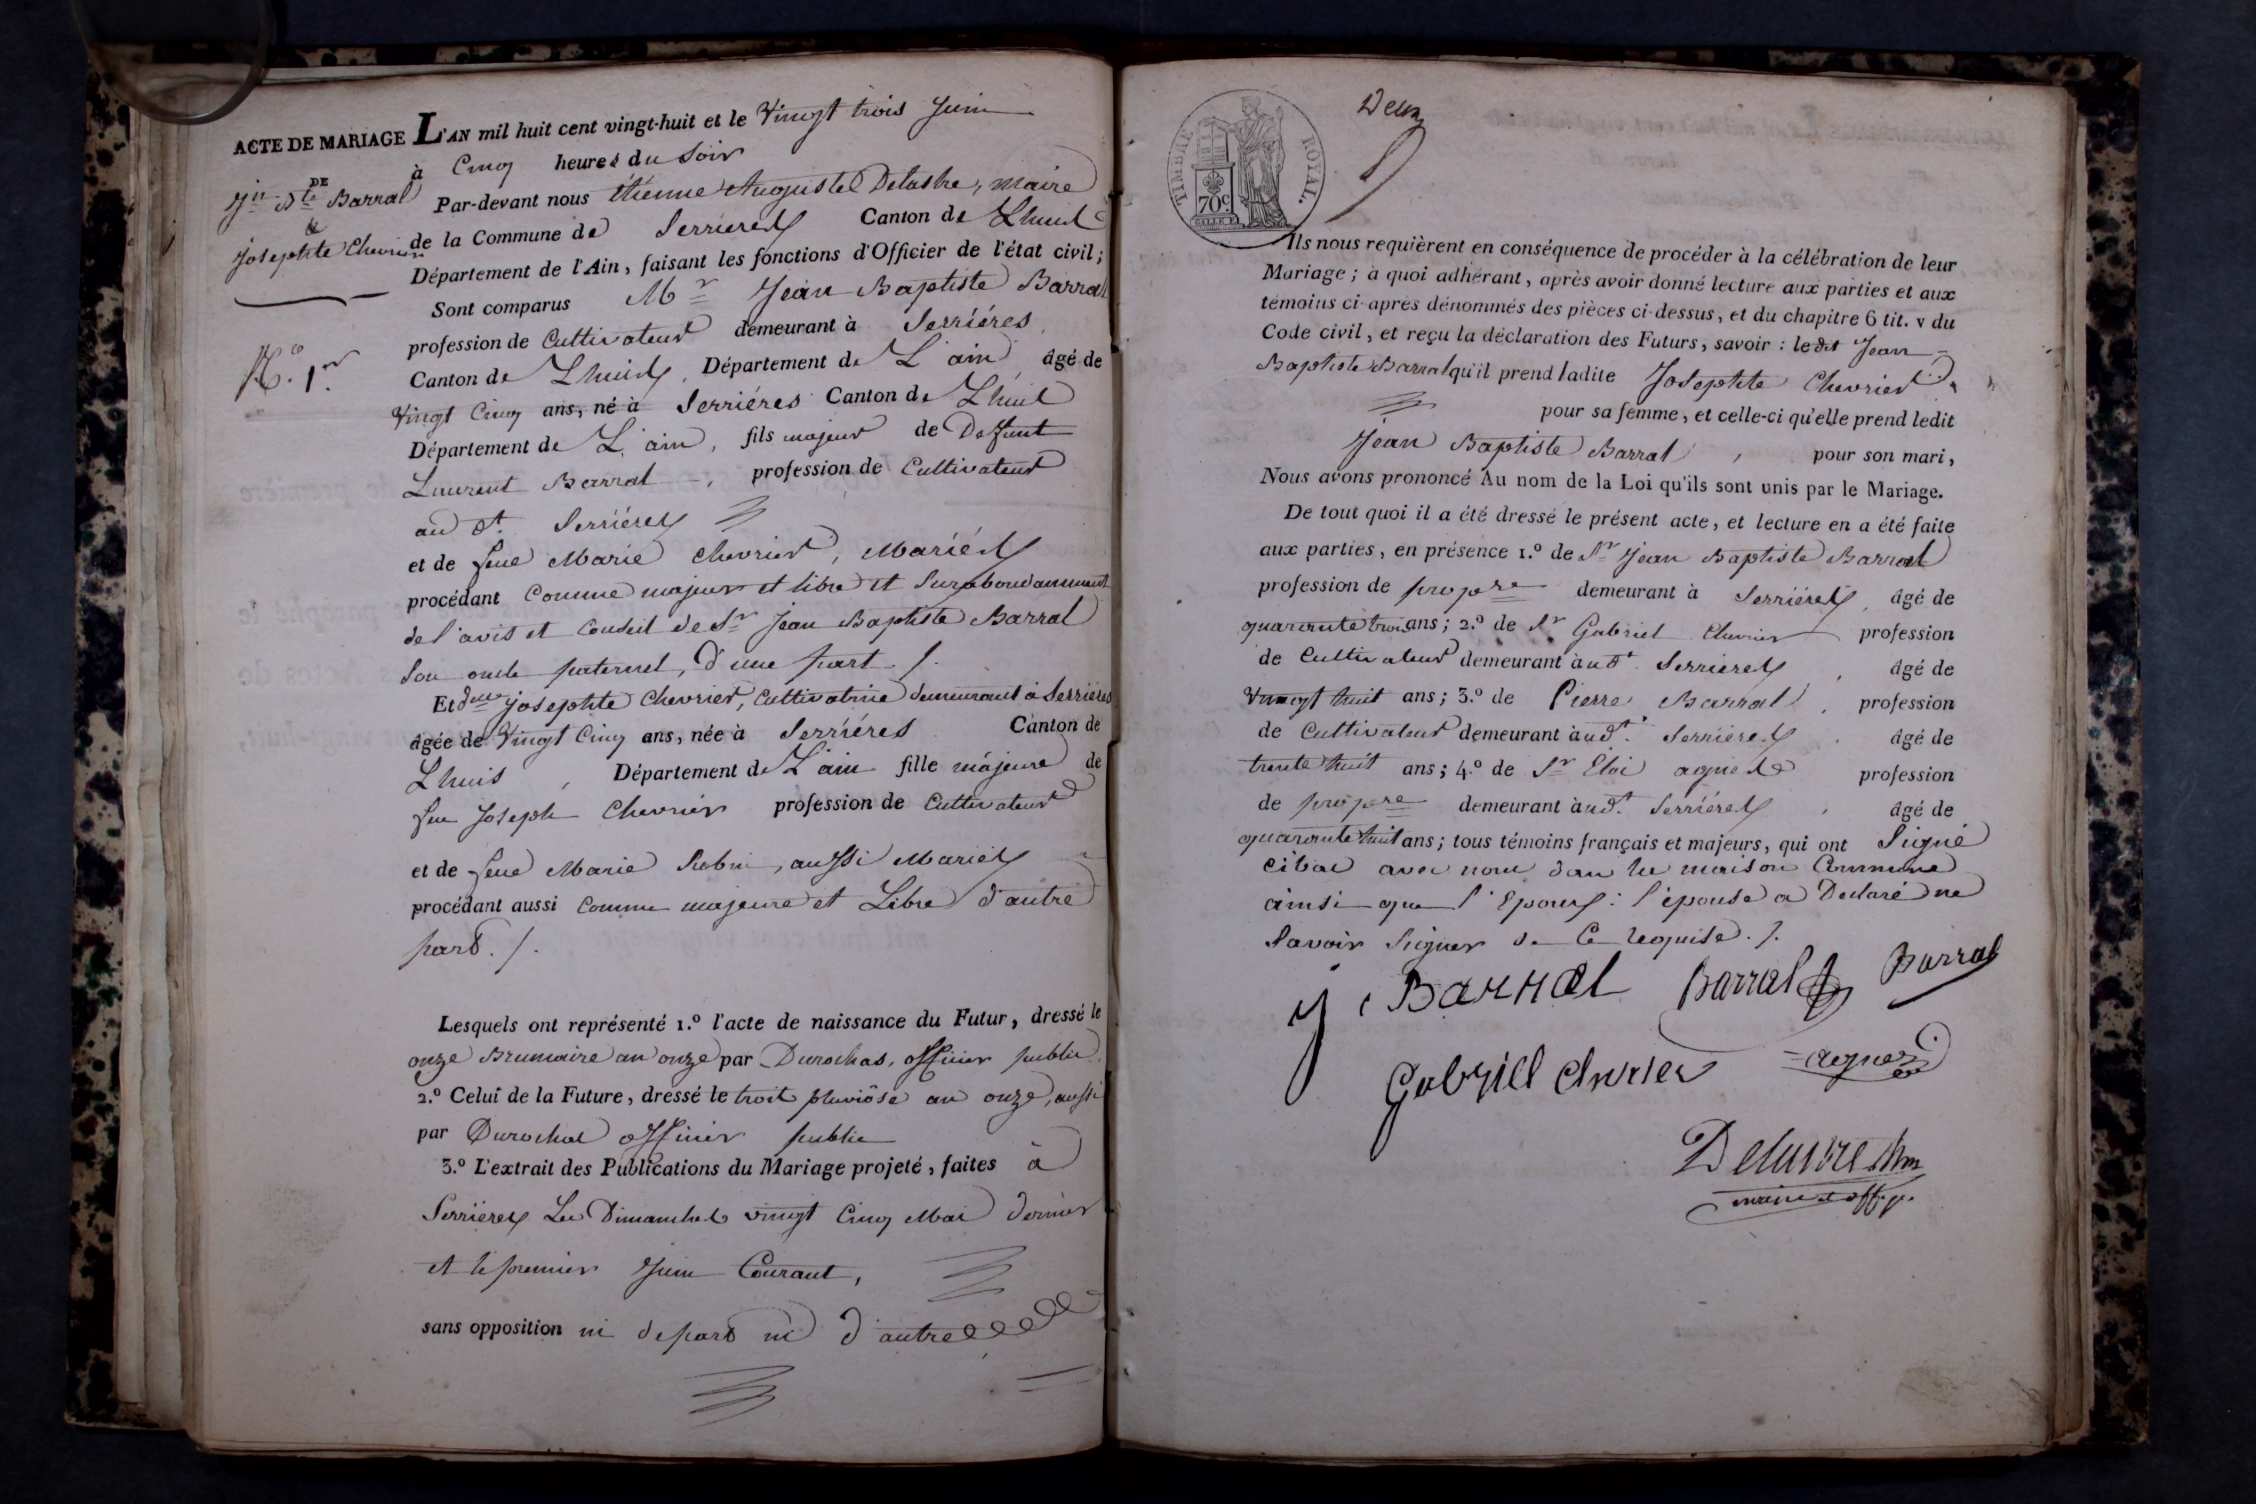 ACTE DE MARIAGE
DE
Jn Bte Barral
&
Josephte Chevrier
N.o 1.er
L'AN mil huit cent vingt-huit et le Vingt trois Juin
à Cinq heures du Soir
Par-devant nous étienne Auguste Delastre, maire
de la Commune de Serrieres Canton de Lhuis
Département de l'Ain, faisant les fonctions d'Officier de l'état civil;
Sont comparus Mr Jean Baptiste Barral
profession de Cultivateur demeurant à Serriéres,
Canton de Lhuis, Département de L'ain, âgé de
Vingt Cinq ans, né à Serriéres Canton de Lhuis
Département de L'ain, fils majeur de Deffunt
Laurent Barral, profession de Cultivateur
au dt. Serriéres
et de feue Marie Chevrier, Mariés
procédant Comme majeur et libre et Surabondamment
de l'avis et Conseil de Sr Jean Baptiste Barral
Son oncle paternel, d'une part ./.
Et dlle Josephte Chevrier, Cultivatrice demeurant à Serriéres
âgée de Vingt Cinq ans, née à Serriéres Canton de
Lhuis, Département de L'ain fille majeure de
feu Joseph Chevrier profession de Cultivateur
et de feue Marie, aussi Mariés
procédant aussi Comme majeure et Libre d'autre
part ./.
Lesquels ont représenté 1.o l'acte de naissance du Futur, dressé le
onze Brumaire an onze par Durochas, officier public.
2.o Celui de la Future, dressé le trois pluviôse an onze, aussi
par Durochas officier public
3.o L'extrait des Publications du Mariage projeté, faites à
Serrieres Les Dimanches vingt Cinq Mai dernier
et le premier Juin Courant,
sans opposition ni de part ni d'autre
Deux
TIMBRE ROYAL.
70c.
Ils nous requièrent en conséquence de procéder à la célébration de leur
Mariage; à quoi adhérant, après avoir donné lecture aux parties et aux
témoins ci-après dénommés des pièces ci-dessus, et du chapitre 6 tit. v du
Code civil, et reçu la déclaration des Futurs, savoir: ledit Jean
Baptiste Barral qu'il prend ladite Josephte Chevrier
pour sa femme, et celle-ci qu'elle prend ledit
Jean Baptiste Barral, pour son mari,
Nous avons prononcé Au nom de la Loi qu'ils sont unis par le Mariage.
De tout quoi il a été dressé le présent acte, et lecture en a été faite
aux parties, en présence 1.o de Sr Jean Baptiste Barral
profession de propre demeurant à Serriéres, âgé de
quarante trois ans; 2.o de Sr Gabriel Chevrier profession
de Cultivateur demeurant à udt. Serrieres, âgé de
Vingt huit ans; 3.o de Pierre Barral, profession
de Cultivateur demeurant à udt. Serrieres, âgé de
trente huit ans; 4.o de Sr Eloi profession
de propre demeurant à udt. Serriéres, âgé de
quarante huit ans; tous témoins français et majeurs, qui ont Signé
avec nous dans la maison Commune
ainsi que l'Epoux: l'épouse a Déclaré ne
Savoir Signer de Ce requise ./.
J. Barral Barral Barral
Gabriel chevrier agnes
Delastre
maire et off. p.